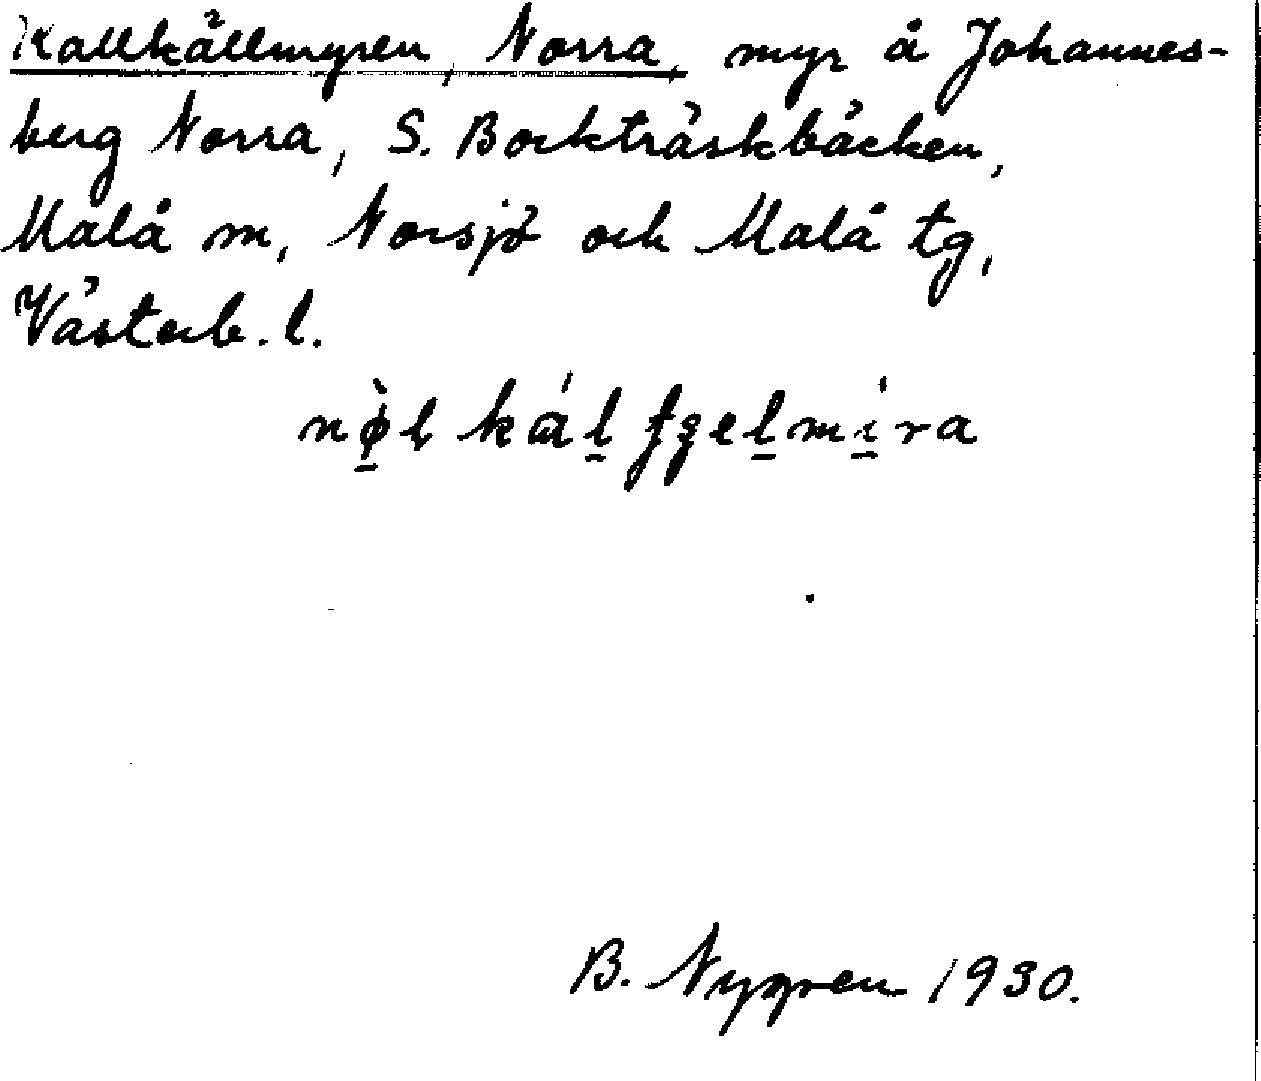 Kallkällmyren, Norra, myr å Johannes-
berg Norra, S. Bockträskbäcken,
Malå m, Norsjö och Malå tg,
Västerb. l.
B. Nygren 1930.